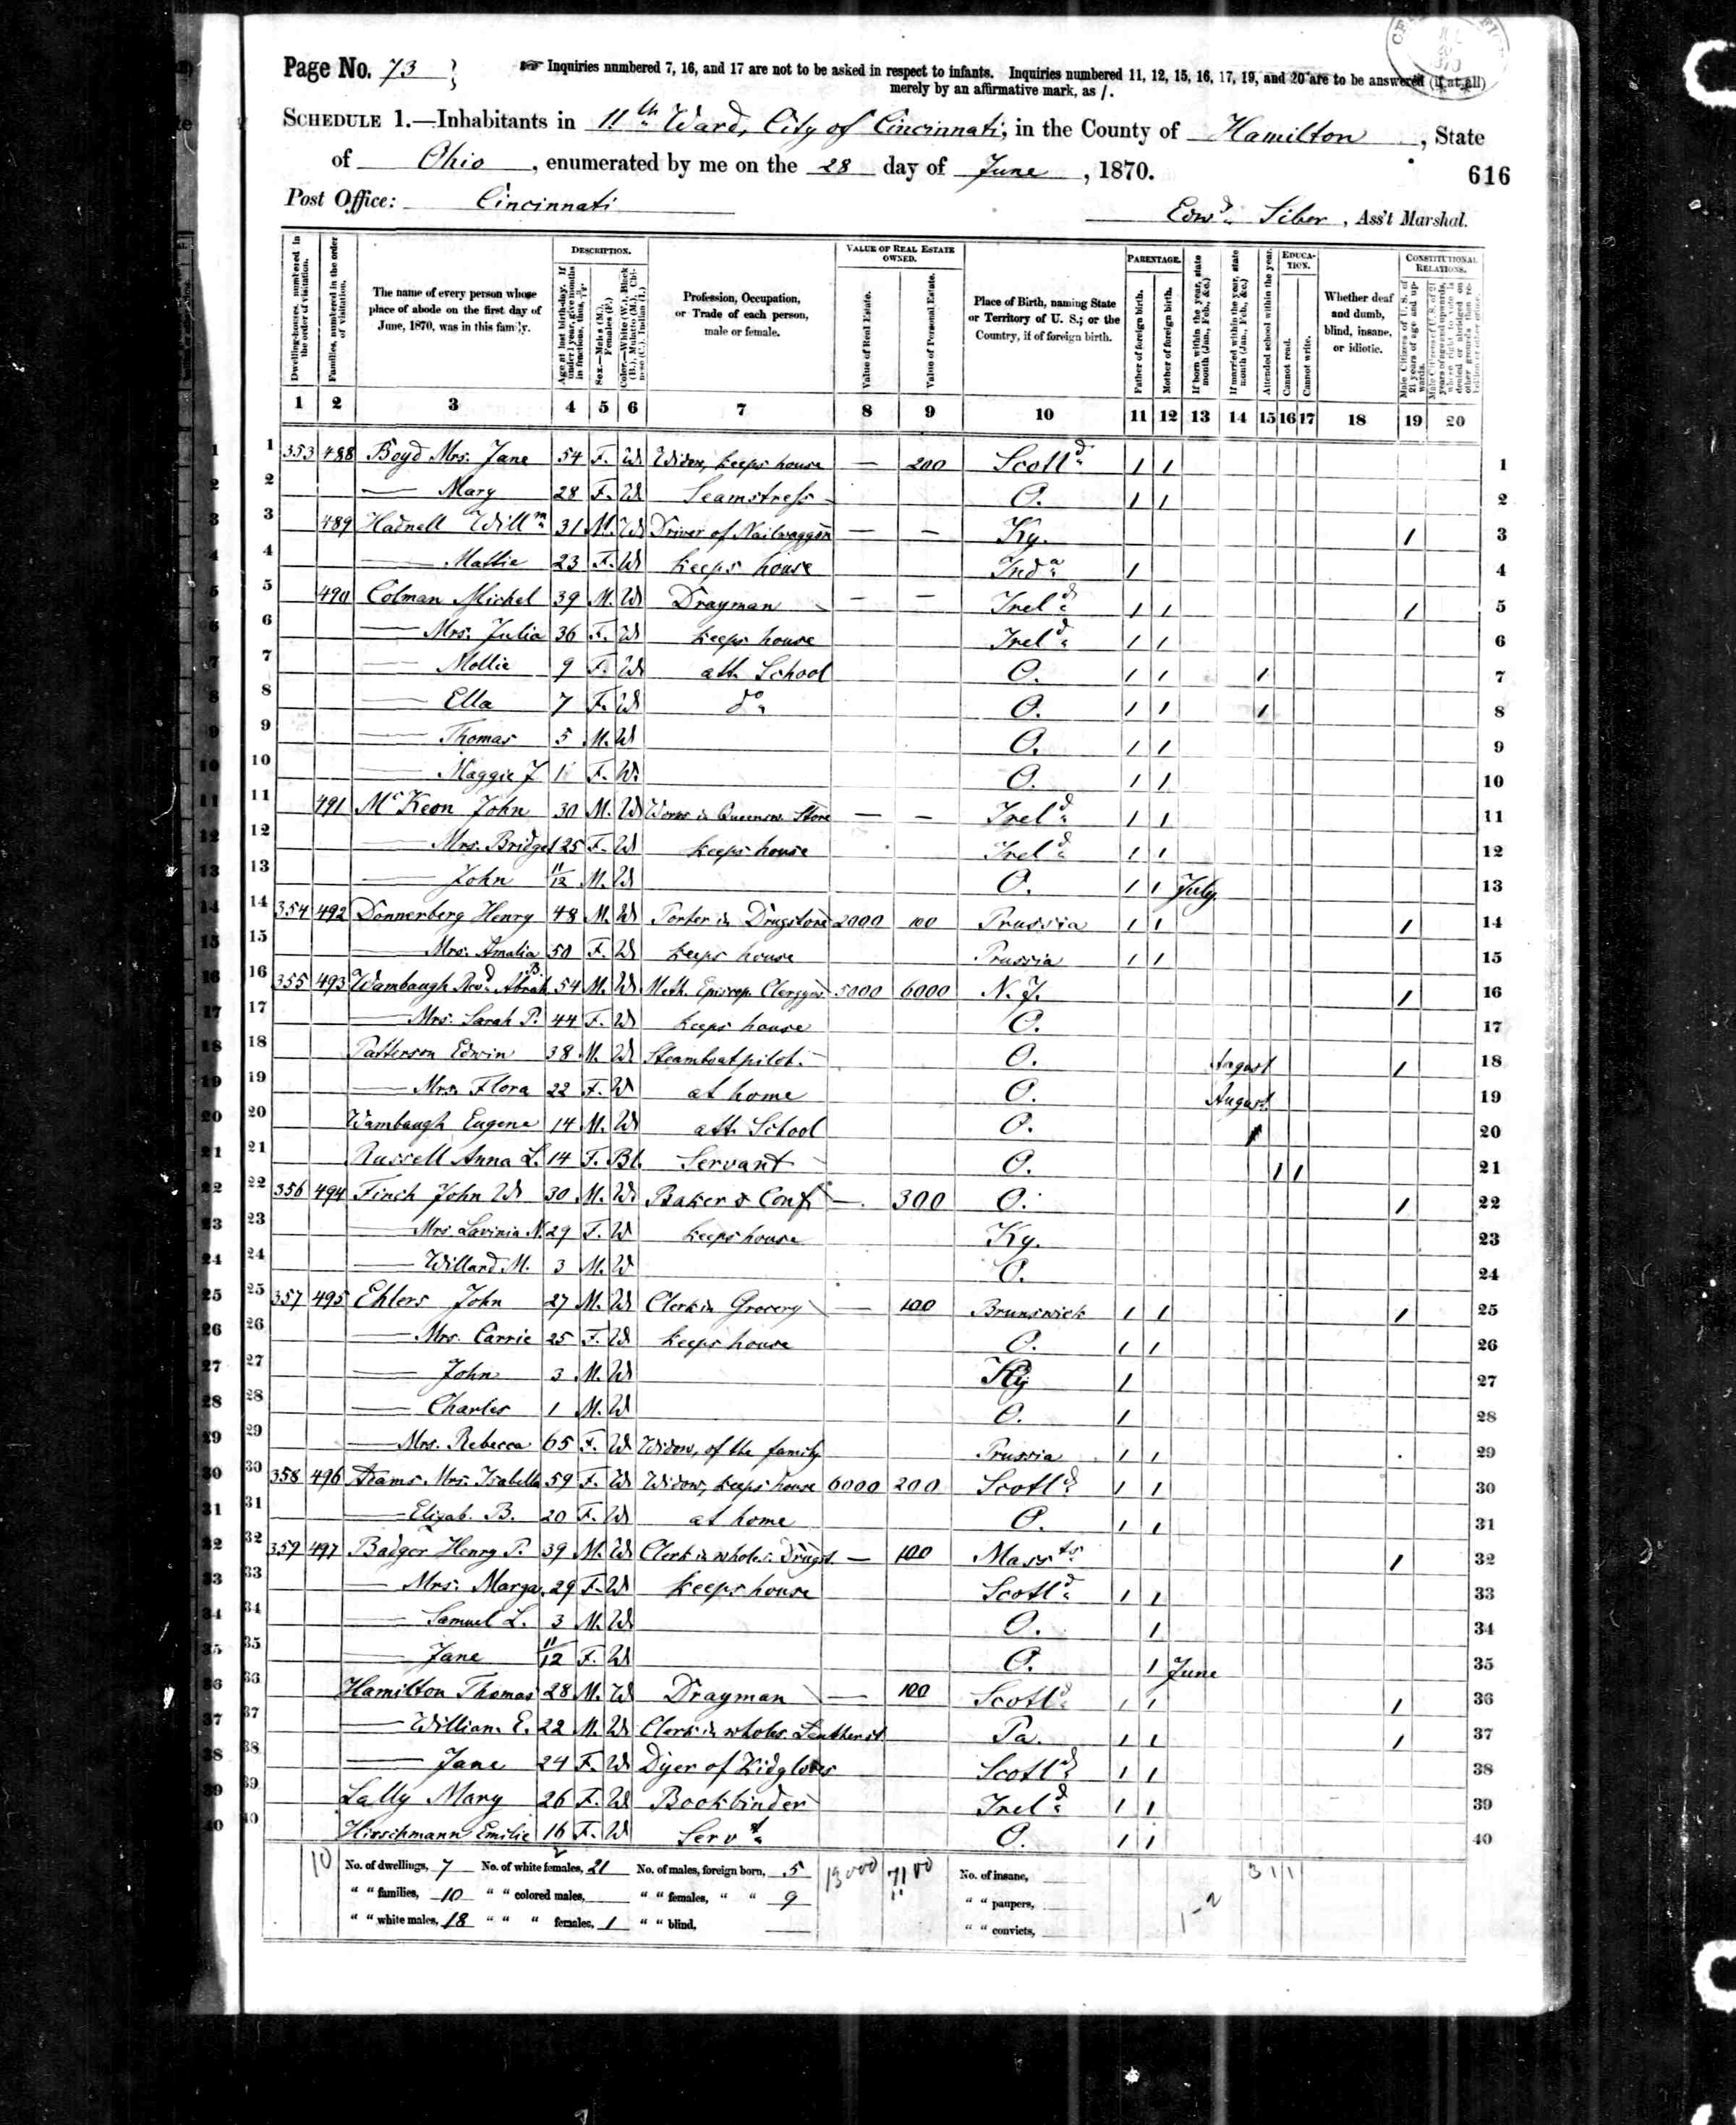 Page No. 73
Inquiries numbered 7, 16, and 17 are not to be asked in respect to infants. Inquiries numbered 11, 12, 15, 16, 17, 19, and 20 are to be answered (if at all)
merely by an affirmative mark, as /.
SCHEDULE 1.—Inhabitants in 11th Ward, City of Cincinnati, in the County of Hamilton, State
of Ohio, enumerated by me on the 28 day of June, 1870.
616
Post Office: Cincinnati
Edwd. Siber, Ass't Marshal.
DESCRIPTION. VALUE OF REAL ESTATE OWNED. PARENTAGE. EDUCATION. CONSTITUTIONAL RELATIONS.
Dwelling-houses, numbered in the order of visitation.
Families, numbered in the order of visitation.
The name of every person whose place of abode on the first day of June, 1870, was in this family.
Age at last birth-day. If under 1 year, give months in fractions, thus, 3/12.
Sex.—Males (M.), Females (F.)
Color.—White (W.), Black (B.), Mulatto (M.), Chinese (C.), Indian (I.)
Profession, Occupation, or Trade of each person, male or female.
Value of Real Estate.
Value of Personal Estate.
Place of Birth, naming State or Territory of U. S.; or the Country, if of foreign birth.
Father of foreign birth.
Mother of foreign birth.
If born within the year, state month (Jan., Feb., &c.)
If married within the year, state month (Jan., Feb., &c.)
Attended school within the year.
Cannot read.
Cannot write.
Whether deaf and dumb, blind, insane, or idiotic.
Male Citizens of U. S. of 21 years of age and upwards.
1 2 3 4 5 6 7 8 9 10 11 12 13 14 15 16 17 18 19 20
1 353 488 Boyd Mrs. Jane 54 F. W Widow, keeps house — 200 Scotld. / / 1
2 — Mary 28 F. W Seamstress O. / / 2
3 489 Hadnell Willm. 31 M. W Driver of Nailwaggon — — Ky. / 3
4 — Mattie 23 F. W keeps house Inda / 4
5 490 Colman Michel 39 M. W Drayman — — Ireld. / / / 5
6 — Mrs. Julia 36 F. W keeps house Ireld. / / 6
7 — Mollie 9 F. W att. School O. / / / 7
8 — Ella 7 F. W do. O. / / / 8
9 — Thomas 5 M. W O. / / 9
10 — Maggie J. 1 F. W. O. / / 10
11 491 McKeon John 30 M. W Works in Queensw. Store — — Ireld. / / 11
12 — Mrs. Bridget 25 F. W keeps house Ireld. / / 12
13 — John 11/12 M. W O. / / July. 13
14 354 492 Donnerberg Henry 48 M. W Porter in Drugstore 2000 100 Prussia / / / 14
15 — Mrs. Amalia 50 F. W keeps house Prussia / / 15
16 355 493 Wambaugh Revd. Abrah. B. 54 M. W Meth. Episcop. Clergym 5000 6000 N. J. / 16
17 — Mrs. Sarah P. 44 F. W keeps house O. 17
18 Patterson Edwin 38 M. W Steamboatpilot. O. August / 18
19 — Mrs. Flora 22 F. W at home O. August 19
20 Wambaugh Eugene 14 M. W att. School O. / 20
21 Russell Anna L. 14 F. Bl. Servant O. / / 21
22 356 494 Finch John W 30 M. W. Baker & Conf. — 300 O. / 22
23 — Mrs. Lavinia N. 29 F. W keeps house Ky. 23
24 — Willard M. 3 M. W O. 24
25 357 495 Ehlers John 27 M. W Clerk in Grocery — 100 Brunswick / / / 25
26 — Mrs. Carrie 25 F. W keeps house O. / / 26
27 — John 3 M. W Ky / 27
28 — Charles 1 M. W O. / 28
29 — Mrs. Rebecca 65 F. W Widow, of the family Prussia / / 29
30 358 496 Adams Mrs. Isabella 59 F. W Widow, keeps house 6000 200 Scotld. / / 30
31 — Elizab. B. 20 F. W at home O. / / 31
32 359 497 Badger Henry P. 39 M. W Clerk in whole. Drugst. — 100 Massts. / 32
33 — Mrs. Marga. 29 F. W keeps house Scotld. / / 33
34 — Samuel L. 3 M. W O. / 34
35 — Jane 11/12 F. W O. / June 35
36 Hamilton Thomas 28 M. W Drayman — 100 Scotld. / / / 36
37 — William E. 22 M. W Clerk in wholes. Leatherst. Pa. / / / 37
38 — Jane 24 F. W Dyer of Kidgloves Scotld. / / 38
39 Lally Mary 26 F. W Bookbinder Ireld. / / 39
40 Hirschmann Emilie 16 F. W Servt. O. / / 40
10 No. of dwellings, 7 No. of white females, 21 No. of males, foreign born, 5 13000 7100 No. of insane, 3 1 1
" " families, 10 " " colored males, " " females, " " 9 " " paupers, 1-2
" " white males, 18 " " " females, 1 " " blind, " " convicts,